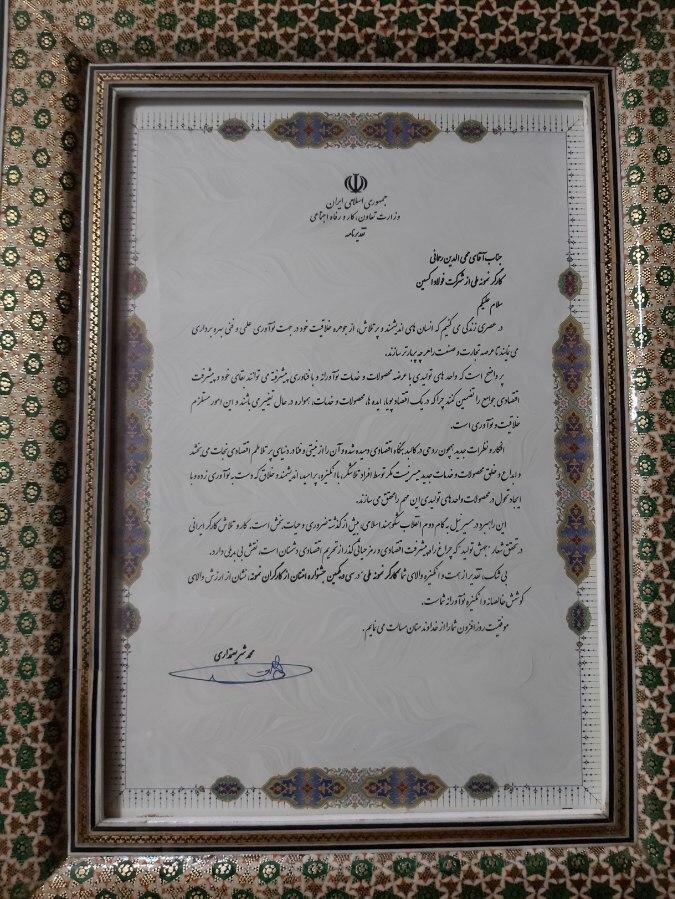 جمهوری اسلامی ایران
وزارت تعاون، کار و رفاه اجتماعی
تقدیرنامه
جناب آقای محی الدین رحمانی
کارگر نمونه ملی از شرکت فولاد اکسین
سلام علیکم
در عصری زندگی می کنیم که انسان های اندیشمند و پر تلاش، از جوهره خلاقیت خود در جهت نوآوری علمی و فنی بهره برداری
می نمایند تا عرصه تجارت و صنعت را هر چه پربارتر سازند.
پر واضح است که واحدهای تولیدی با عرضه محصولات و خدمات نوآورانه و با فناوری پیشرفته می توانند بقای خود و پیشرفت
اقتصادی جوامع را تضمین کنند چرا که در یک اقتصاد پویا، ایده ها، محصولات و خدمات، همواره در حال تغییر می باشند و این امور مستلزم
خلاقیت و نوآوری است.
افکار و نظرات جدید همچون روحی در کالبد بنگاه اقتصادی دمیده شده و آن را از نیستی و فنا در دنیای پر تلاطم اقتصادی نجات می بخشد
و ابداع و خلق محصولات و خدمات جدید میسر نیست مگر توسط افراد تلاشگر، با انگیزه، پر امید، اندیشمند و خلاق که دست به نوآوری زده و با
ایجاد تحول در محصولات واحدهای تولیدی این مهم را محقق می سازند.
این راهبرد در مسیر نیل به گام دوم انقلاب شکوهمند اسلامی، بیش از گذشته ضروری و حیات بخش است. کار و تلاش کارگر ایرانی
در تحقق شعار "جهش تولید" که چراغ راه پیشرفت اقتصادی و رمز حیاتی گذر از تحریم اقتصادی دشمنان است، نقش بی بدیلی دارد.
بی شک، تقدیر از همت و انگیزه والای شما "کارگر نمونه ملی" در سی و یکمین جشنواره امتنان از کارگران نمونه، نشان از ارزش والای
کوشش خالصانه و انگیزه نوآورانه شماست.
موفقیت روزافزون شما را از خداوند منان مسالت می نمایم.
محمد شریعتمداری